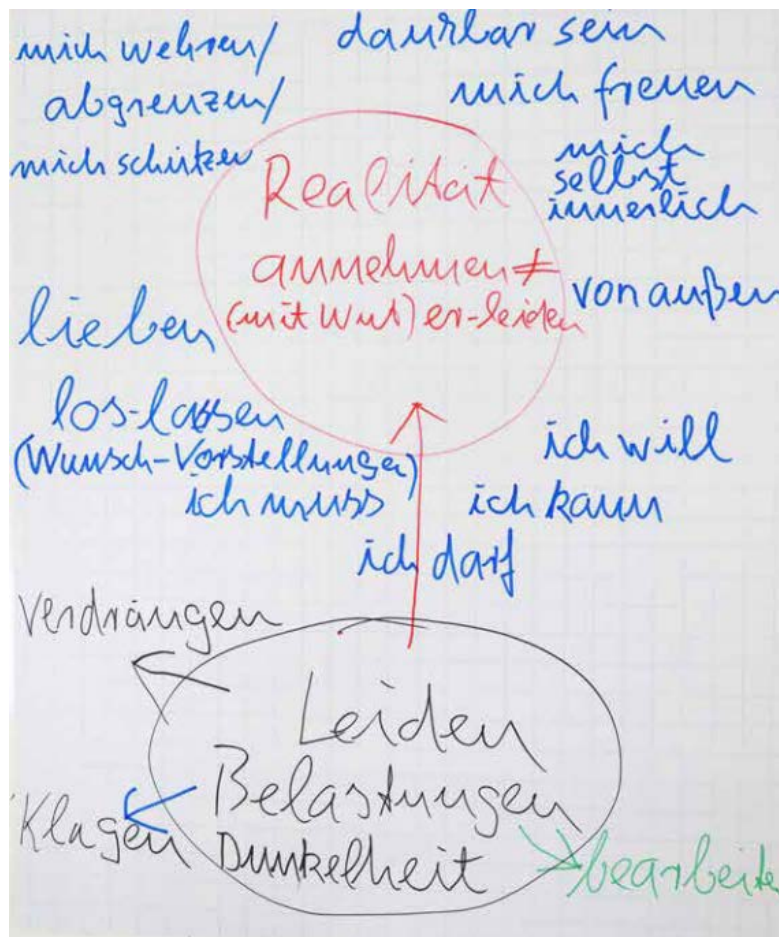 mich wehren/
abgrenzen/
mich schützen
dankbar sein
mich freuen
mich
selbst
innerlich
von außen
Realität
annehmen ≠
(mit Wut) er-leiden
lieben
los-lassen
(Wunsch-Vorstellungen)
ich muss
ich will
ich kann
ich darf
Verdrängen
Leiden
Belastungen
Dunkelheit
Klagen
bearbeite